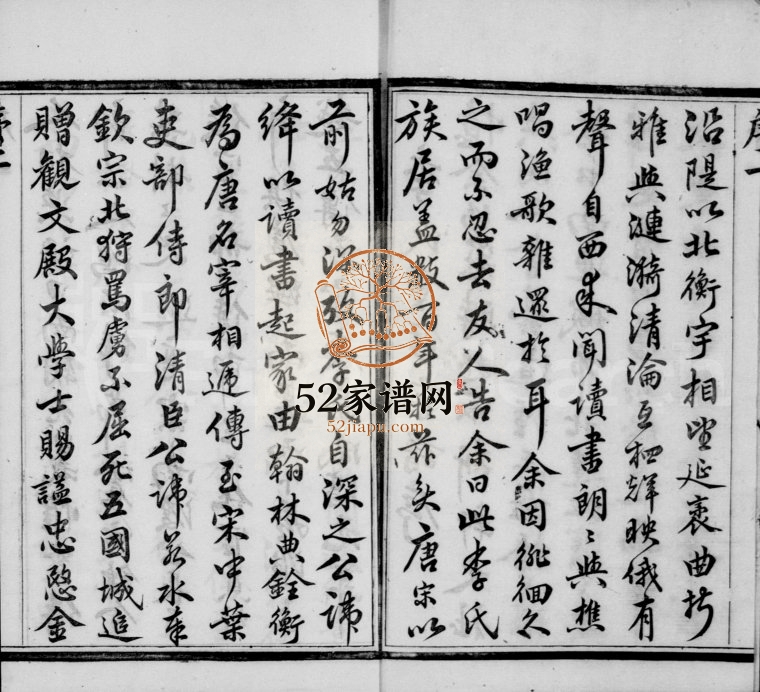 序一
沿隄以北衡宇相望延袤曲折
雅與漣漪清淪互相輝映俄有
聲自西來聞讀書朗〻與樵
唱漁歌雜遝於耳余因徘徊久
之而不忍去友人告余曰此李氏
族居蓋數百年於茲矣唐宋以
前姑勿深 自深之公諱
絳以讀書起家由翰林典銓衡
為唐名宰相遞傳至宋中葉
吏部侍郎清臣公諱若水奉
欽宗北狩罵虜不屈死五國城追
贈觀文殿大學士賜謚忠愍金
序二
52家谱网
52jiapu.com